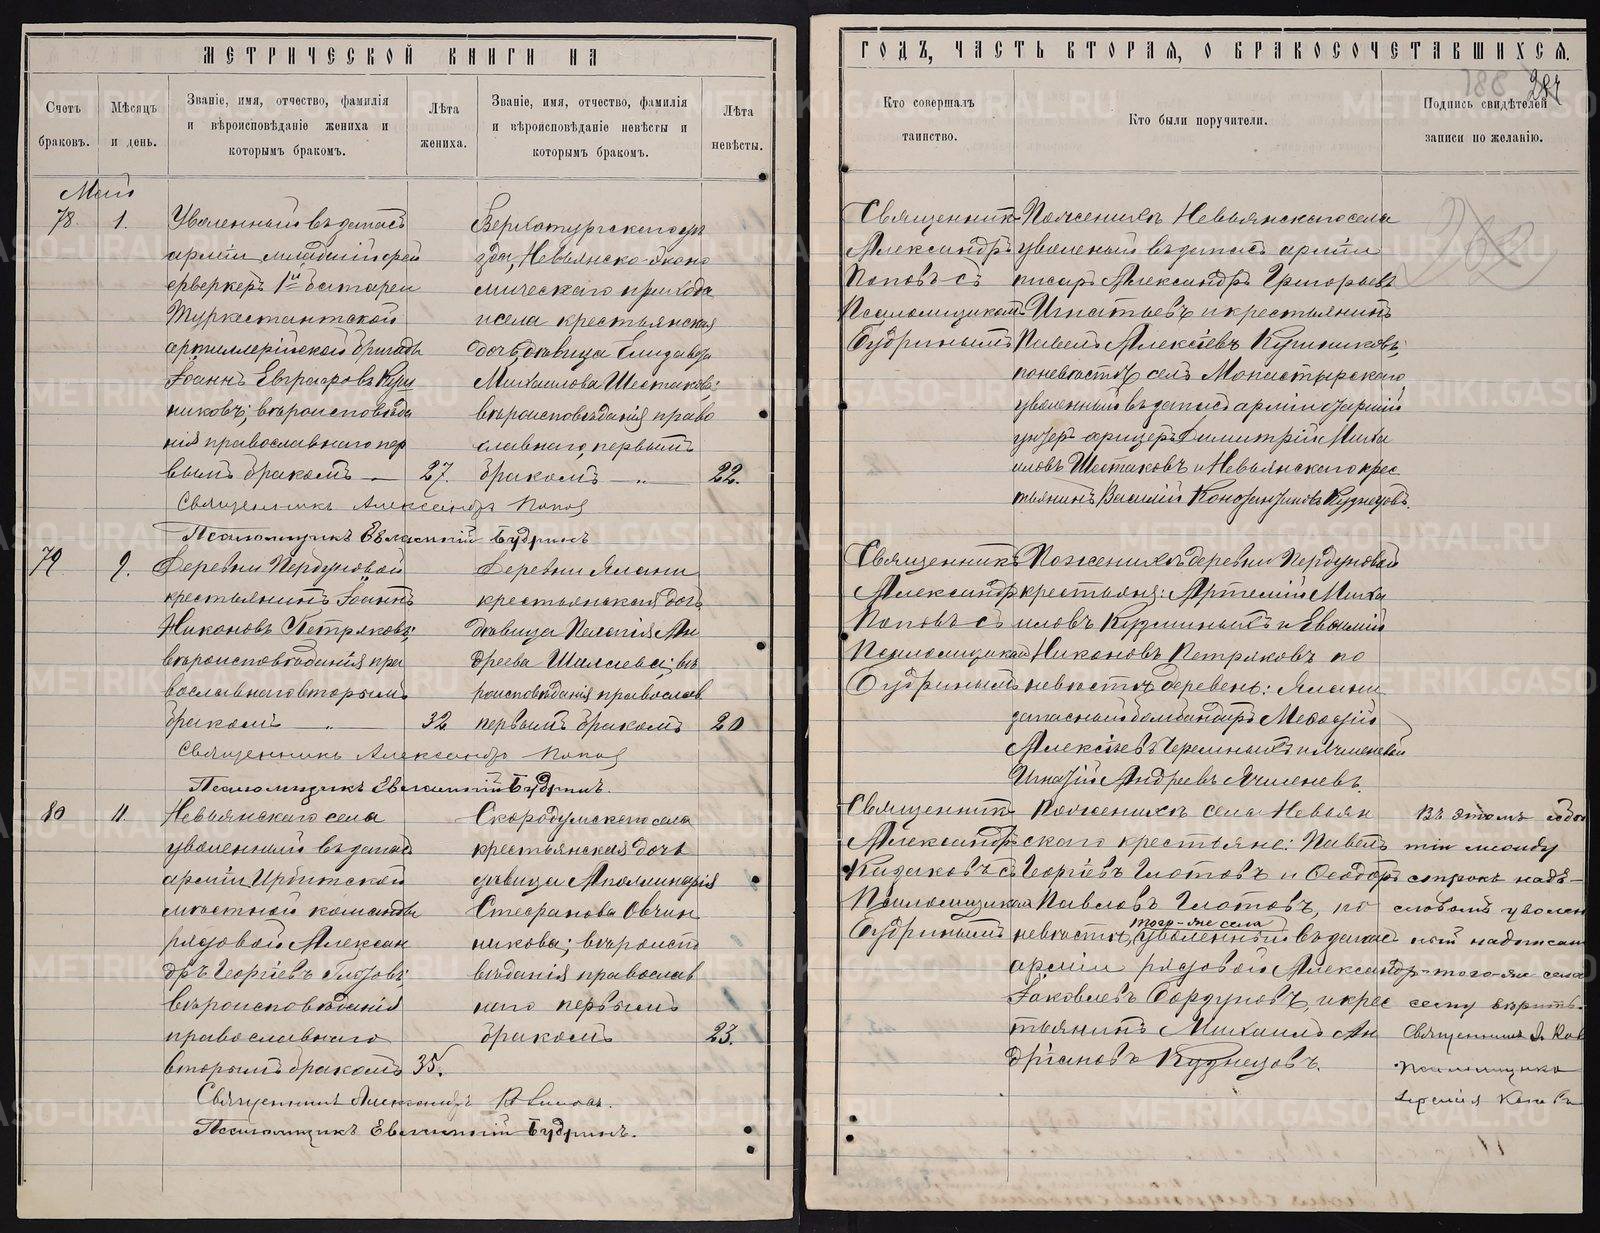 МЕТРИЧЕСКОЙ КНИГИ НА
Счетъ браковъ.
Мѣсяцъ и день.
Званіе, имя, отчество, фамилія
и вѣроисповѣданіе жениха и
которымъ бракомъ.
Лѣта жениха.
Званіе, имя, отчество, фамилія
и вѣроисповѣданіе невѣсты и
которымъ бракомъ.
Лѣта невѣсты.
78. 1.
Уволенный въ запасъ
арміи младшій фей
ерверкеръ 1й батареи
Туркестантской
артиллерійской бригады
Іоаннъ Евграфовъ
никовъ; вѣроисповѣда
нія православнаго пер
вымъ бракомъ — 27.
Верхотурскаго уѣ
зда, Невьянско-Эконо
мическаго прихода
и села крестьянская
дочь, дѣвица Елизавета
Михаилова Шестакова;
вѣроисповѣданія право
славнаго, первымъ
бракомъ — 22.
Священникъ Александръ Поповъ
Псаломщикъ Евлампій Будринъ
79 9.
Деревни Пердуновой
крестьянинъ Іоаннъ
Никоновъ Петряковъ;
вѣроисповѣданія пра
вославнаго вторымъ
бракомъ 32
Деревни Ялани
крестьянская дочь
дѣвица Пелагія Ан
дреева; вѣ
роисповѣданія православ
первымъ бракомъ 20
Священникъ Александръ Поповъ
Псаломщикъ Евлампій Будринъ.
80 11.
Невьянскаго села
уволенный въ запасъ
арміи Ирбитской
мѣстной команды
рядовой Алексан
дръ Георгіевъ Глотовъ;
вѣроисповѣданія
православнаго
вторымъ бракомъ 35.
Скородумскаго села
крестьянская дочь
дѣвица Аполлинарія
Стефанова Овчин
никова; вѣроиспо
вѣданія православ
наго первымъ
бракомъ 23.
Священникъ Александръ
Псаломщикъ Евлампій Будринъ.
ГОДЪ, ЧАСТЬ ВТОРАЯ, О БРАКОСОЧЕТАВШИХСЯ.
284
Кто совершалъ таинство.
Кто были поручители.
Подпись свидѣтелей записи по желанію.
Священникъ
Александръ
Поповъ съ
Псаломщикомъ
Будринымъ
По женихѣ Невьянскаго села
уволеный въ запасъ арміи
писарь Александръ Григорьевъ
Игнатьевъ и крестьянинъ
Павелъ Алексѣевъ
по невѣстѣ селъ Монастырскаго
уволенный въ запасъ арміи старшій
унтеръ офицеръ Димитрій Миха
иловъ Шестаковъ и Невьянскаго крес
тьянинъ Василій Кузнецовъ.
Священникъ
Александръ
Поповъ съ
Псаломщикомъ
Будринымъ
По женихѣ деревни Пердуновой
крестьяне: Артемій Миха
иловъ Кузминыхъ и Евфимій
Никоновъ Петряковъ по
невѣстѣ деревень: Ялани
запасный бомбандиръ Мефодій
Алексѣевъ
Игнатій Андреевъ Ячменевъ.
Священникъ
Александръ
съ
Псаломщикомъ
Будринымъ
По женихѣ села Невьян
скаго крестьяне: Павелъ
Георгіевъ Глотовъ и Ѳеодоръ
Павловъ Глотовъ, по
того-же села
невѣстѣ, уволенный въ запас
арміи рядовой Александръ
Іаковлевъ, и крес
тьянинъ Михаилъ Ан
дріановъ Кузнецовъ.
Въ этомъ
между
строкъ надъ
словомъ уволен
ный надписан
того-же села
сему вѣрить.
Священникъ